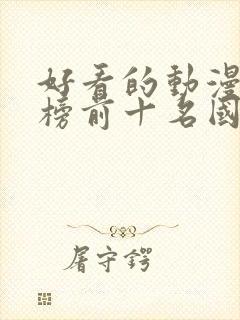 好看的動漫
榜前十名國
屠守鍔